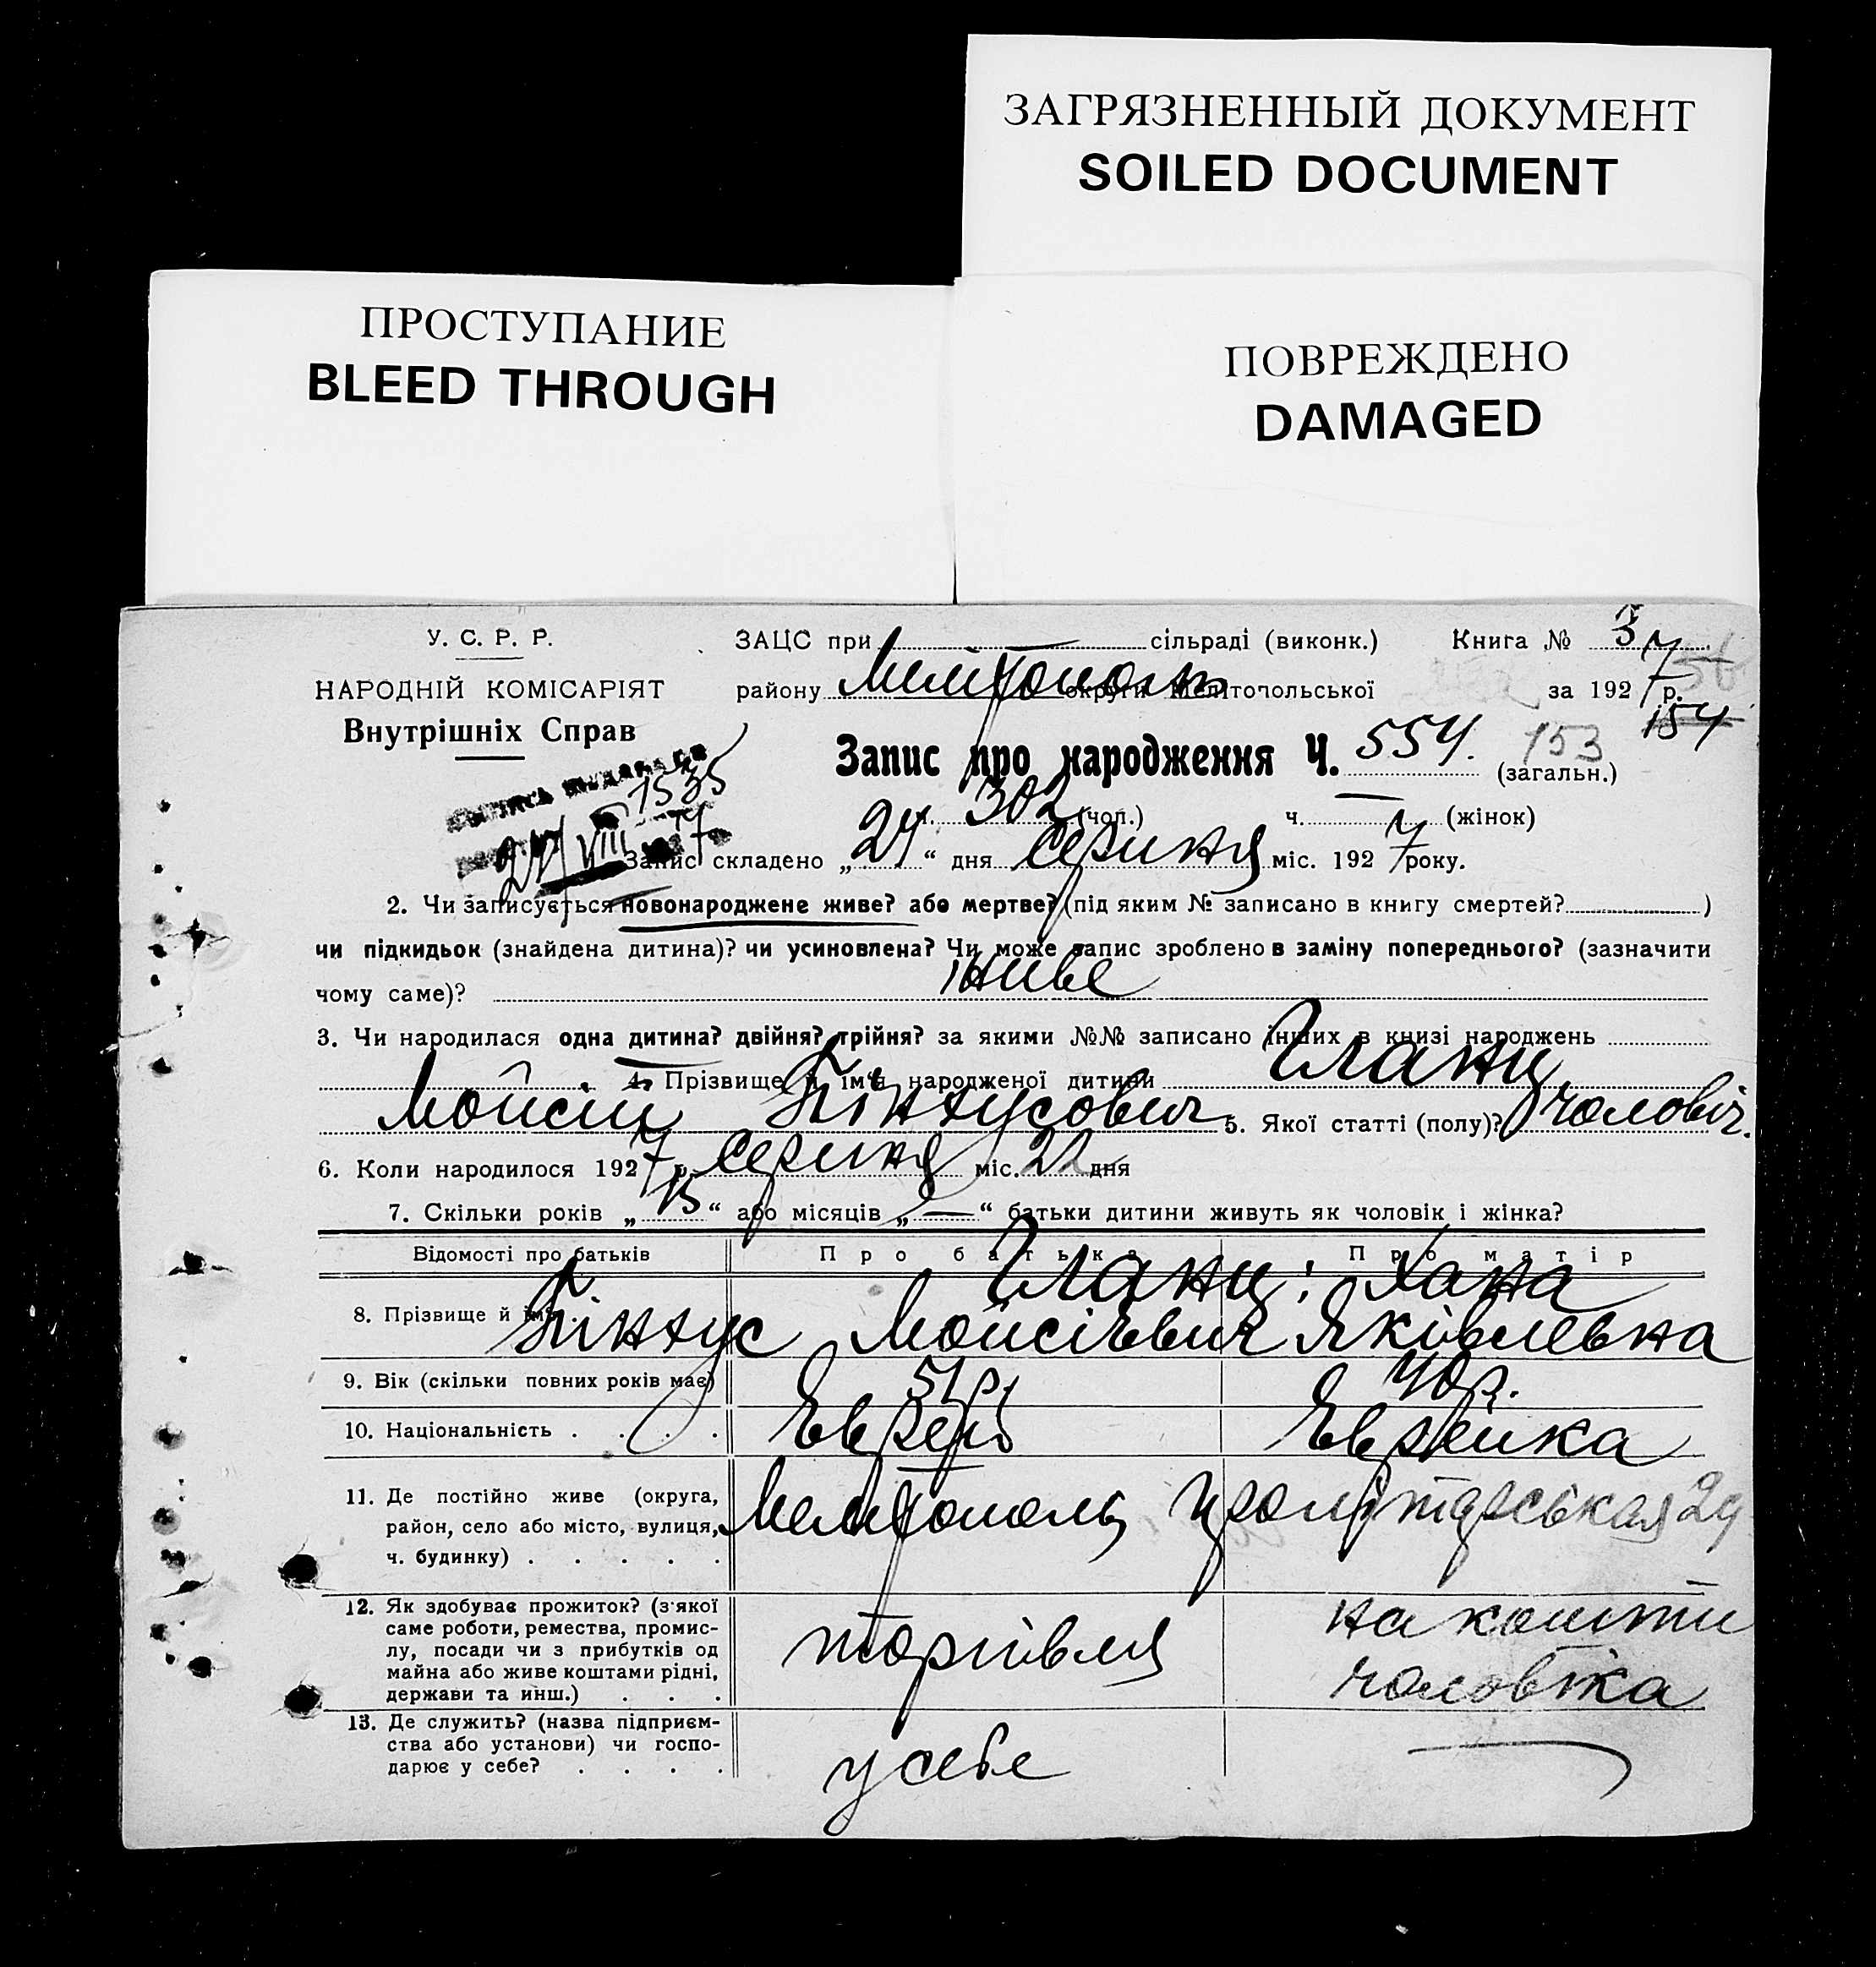 ЗАГРЯЗНЕННЫЙ ДОКУМЕНТ
SOILED DOCUMENT
ПРОСТУПАНИЕ
BLEED THROUGH
ПОВРЕЖДЕНО
DAMAGED
У. С. Р. Р.
НАРОДНІЙ КОМІСАРІЯТ
Внутрішніх Справ
ЗАЦС при сільраді (виконк.) Книга № 3
району Мелітополь округи Мелітопольської за 1927 р.
154
Запис про народження Ч. 554. 153
(загальн.)
1535
ч. 302 (чол.) ч. — (жінок)
24 VIII
Запис складено „24“ дня серпня міс. 1927 року.
2. Чи записується новонароджене живе? або мертве? (під яким № записано в книгу смертей? )
чи підкидьок (знайдена дитина)? чи усиновлена? Чи може запис зроблено в заміну попереднього? (зазначити
чому саме)? живе
3. Чи народилася одна дитина? двійня? трійня? за якими №№ записано інших в книзі народжень
4. Прізвище й ім'я народженої дитини Гланц
Мойсій Пінхусович 5. Якої статті (полу)? чоловіч.
6. Коли народилося 1927 р. серпня міс. 22 дня
7. Скільки років „15“ або місяців „—“ батьки дитини живуть як чоловік і жінка?
Відомості про батьків Про батька Про матір
8. Прізвище й ім'я Гланц: Хана
Пінхус Мойсієвич Яківлевна
9. Вік (скільки повних років має) 51 р. 40 р.
10. Національність . . . . Еврей Еврейка
11. Де постійно живе (округа,
район, село або місто, вулиця,
ч. будинку) . . . . .
Мелітополь 24
12. Як здобуває прожиток? (з якої
саме роботи, ремества, промис-
лу, посади чи з прибутків од
майна або живе коштами рідні,
держави та инш.) . . .
торгівля
на кошти
чоловіка
13. Де служить? (назва підприєм-
ства або установи) чи госпо-
дарює у себе? . . . .
у себе